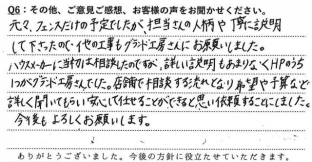 Q6：その他、ご意見ご感想、お客様の声をお聞かせください。
元々、フェンスだけの予定でしたが、担当さんの人柄や丁寧に説明
して下さったので、他の工事もグランド工房さんにお願いしました。
ハウスメーカーに当初は相談したのですが、詳しい説明もあまりなくHPのうち
1つがグランド工房さんでした。店舗で相談する流れとなり希望や予算など
詳しく聞いてもらい安心して任せることができると思い依頼することにしました。
今後もよろしくお願いします。
ありがとうございました。今後の方針に役立たせていただきます。